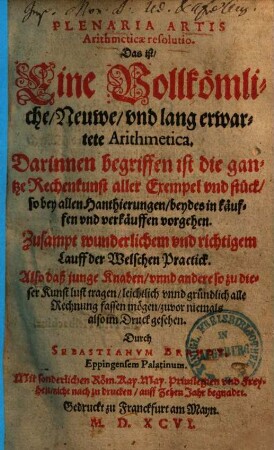 PLENARIA ARTIS
Arithmeticæ resolutio.
Das ist/
Eine Vollkömli-
che/Neuwe/vnd lang erwar-
tete Arithmetica.
Darinnen begriffen ist die gan-
tze Rechenkunst aller Exempel vnd stück/
so bey allen Hanthierungen/beydes in käuf-
fen vnd verkäuffen vorgehen.
Zusampt wunderlichem vnd richtigem
Lauff der Welschen Practick.
Also daß junge Knaben/vnnd andere so zu die-
ser Kunst lust tragen/leichtlich vnnd gründlich alle
Rechnung fassen mögen/zuvor niemals
also im Druck gesehen.
Durch
SEBASTIANVM
Eppingensem Palatinum.
Mit sonderlichen Röm. Kay. May. Privilegien vnd Frey-
heit/nicht nach zu drucken/auff Zehen Jahr begnadet.
Gedruckt zu Franckfurt am Mayn.
M. D. XCVI.